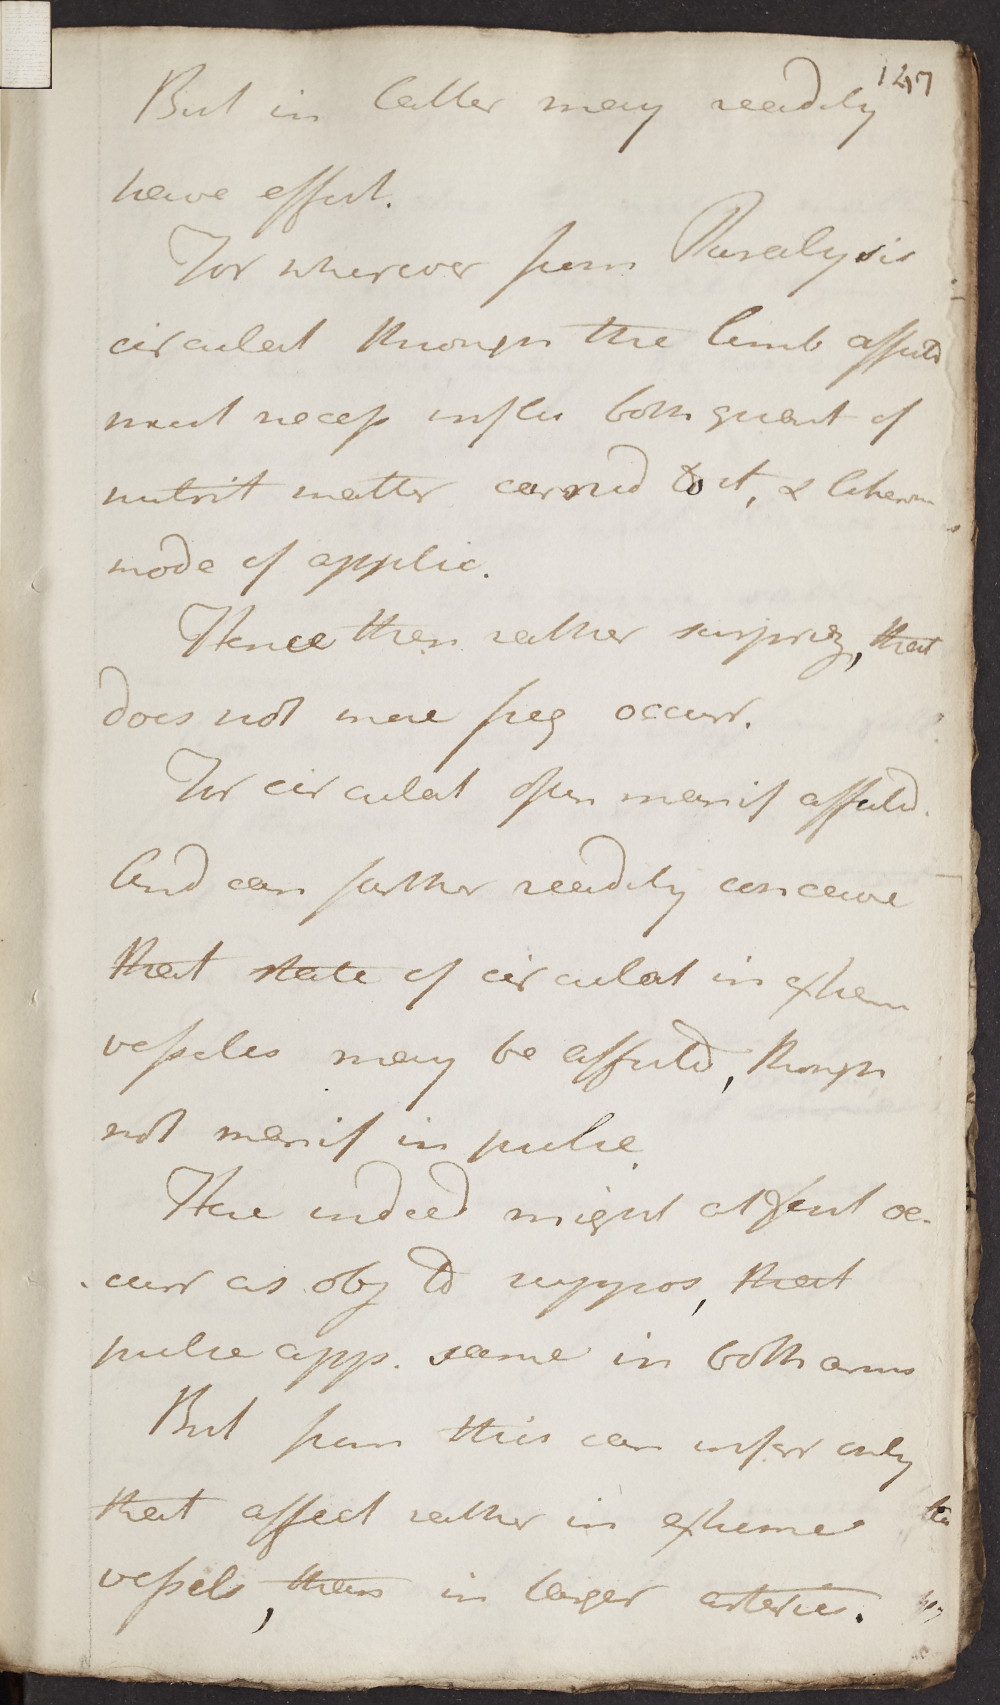 147
But in latter may readily
have effect.
For wherever from Paralysis
circulat through the limb affectd
must necess influ both quant of
nutrit matter carried to it, & likewise
mode of applic.
Hence then rather surprizg, that
does not more freq occurr.
For circulat often manif affectd.
And can farther readily conceive
that state of circulat in extrem
vessels may be affectd, though
not manif in pulse.
Here indeed might at first oc-
-curr as obj to suppos, that
pulse app. same in both arms
But from this can inferr only
that affect rather in extreme
vessels, than in larger arteries.